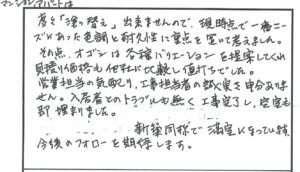 マンション・アパートは
度々「塗り替え」出来ませんので、現時点で一番ニー
ズにあった色調と耐久性に重点を置いて考えました。
その点、オゴシは各種バリエーションを提案してくれ
見積り価格も他社に比較し値打ちでした。
営業担当の気配り、工事担当者の誠実さ申分ありま
せん。入居者とのトラブルも無く工事完了し、空室も
即埋まりました。
新築同様で満室になっています。
今後のフォローを期待します。